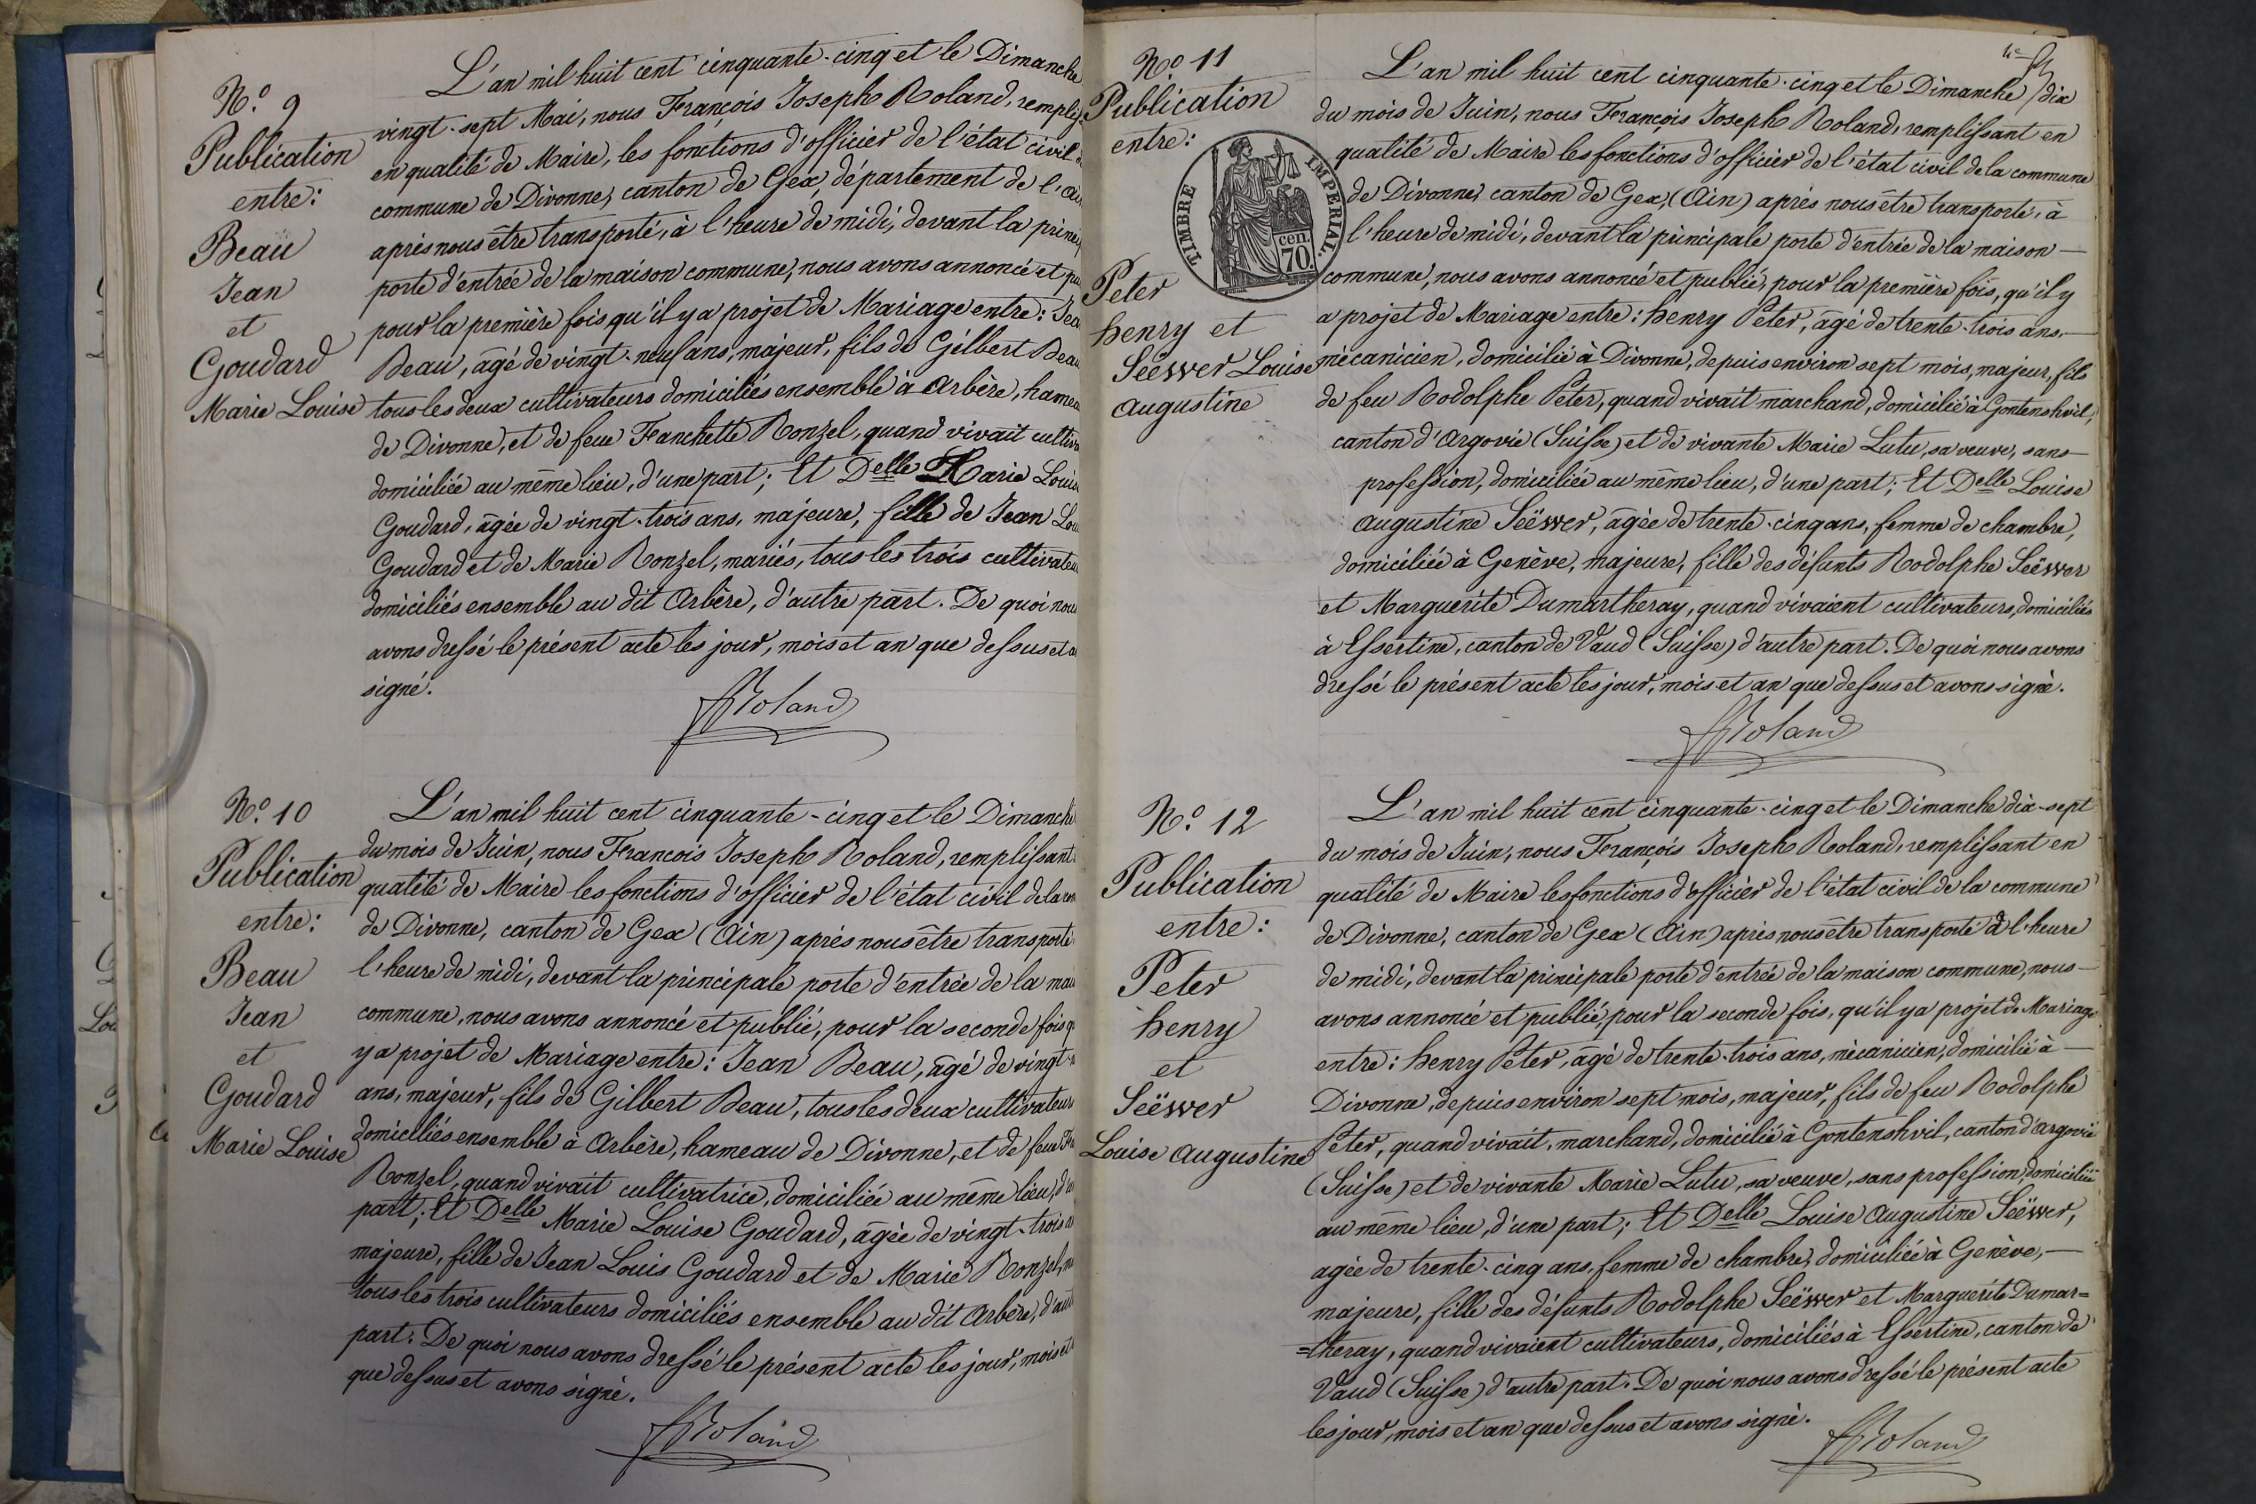 N.º 9
Publication
entre:
Beau
Jean
et
Goudard
Marie Louise
L'an mil huit cent cinquante-cinq et le Dimanche
vingt-sept Mai, nous François Joseph Roland, remplis
en qualité de Maire, les fonctions d'officier de l'état civil
commune de Divonne, canton de Gex, département de l'Ain
après nous être transporté, à l'heure de midi, devant la princi
porte d'entrée de la maison commune, nous avons annoncé et pu
pour la première fois, qu'il y a projet de Mariage entre: Jea
Beau, âgé de vingt-neuf ans, majeur, fils de Gilbert Beau
tous les deux cultivateurs domiciliés ensemble à Arbère, hamea
de Divonne, et de feue Franchette Ronzel, quand vivait cultiva
domiciliée au même lieu, d'une part; Et Delle Marie Louis
Goudard, âgée de vingt-trois ans, majeure, fille de Jean Lou
Goudard et de Marie Ronzel, mariés, tous les trois cultivateu
domiciliés ensemble au dit Arbère, d'autre part. De quoi nous
avons dressé le présent acte les jour, mois et an que dessus et a
signé.
FJRoland
N.º 10
Publication
entre:
Beau
Jean
et
Goudard
Marie Louise
L'an mil huit cent cinquante-cinq et le Dimanche
du mois de Juin, nous François Joseph Roland, remplissant
qualité de Maire les fonctions d'officier de l'état civil de la com
de Divonne, canton de Gex (Ain) après nous être transporté
l'heure de midi, devant la principale porte d'entrée de la mai
commune, nous avons annoncé et publié, pour la seconde fois q
y a projet de Mariage entre: Jean Beau, âgé de vingt-n
ans, majeur, fils de Gilbert Beau, tous les deux cultivateurs
domiciliés ensemble à Arbère, hameau de Divonne, et de feue Fra
Ronzel, quand vivait cultivatrice, domiciliée au même lieu, d'u
part; Et Delle Marie Louise Goudard, âgée de vingt-trois a
majeure, fille de Jean Louis Goudard et de Marie Ronzel, m
tous les trois cultivateurs domiciliés ensemble au dit Arbère, d'aut
part. De quoi nous avons dressé le présent acte les jour, mois et
que dessus et avons signé.
FJRoland
Nº 11
Publication
entre:
TIMBRE IMPERIAL.
cen.
70.
Peter
henry et
Seëwer Louise
augustine
L'an mil huit cent cinquante-cinq et le Dimanche dix
du mois de Juin, nous François Joseph Roland, remplissant en
qualité de Maire les fonctions d'officier de l'état civil de la commune
de Divonne, canton de Gex, (Ain) après nous être transporté, à
l'heure de midi, devant la principale porte d'entrée de la maison
commune, nous avons annoncé et publié, pour la première fois, qu'il y
a projet de Mariage entre: henry Peter, âgé de trente-trois ans,
mécanicien, domicilié à Divonne, depuis environ sept mois, majeur, fils
de feu Rodolphe Peter, quand vivait marchand, domicilié à Gontenshvil,
canton d'Argovie (Suisse) et de vivante Marie Lutu, sa veuve, sans
profession, domiciliée au même lieu, d'une part; Et Delle Louise
augustine Seëwer, âgée de trente-cinq ans, femme de chambre,
domiciliée à Genève, majeure, fille des défunts Rodolphe Seëwer
et Marguerite Dumartheray, quand vivaient cultivateurs, domiciliés
à Essertine, canton de Vaud (Suisse) d'autre part. De quoi nous avons
dressé le présent acte les jour, mois et an que dessus et avons signé.
FJRoland
N.º 12
Publication
entre:
Peter
henry
et
Seëwer
Louise augustine
L'an mil huit cent cinquante-cinq et le Dimanche dix-sept
du mois de Juin, nous François Joseph Roland, remplissant en
qualité de Maire les fonctions d'officier de l'état civil de la commune
de Divonne, canton de Gex (Ain) après nous être transporté à l'heure
de midi, devant la principale porte d'entrée de la maison commune, nous
avons annoncé et publié, pour la seconde fois, qu'il y a projet de Mariage
entre: henry Peter, âgé de trente-trois ans, mécanicien, domicilié à
Divonne, depuis environ sept mois, majeur, fils de feu Rodolphe
Peter, quand vivait, marchand, domicilié à Gontenshvil, canton d'argovie
(Suisse) et de vivante Marie Lutu, sa veuve, sans profession, domiciliée
au même lieu, d'une part; Et Delle Louise augustine Seëwer,
agée de trente-cinq ans, femme de chambre, domiciliée à Genève,
majeure, fille des défunts Rodolphe Seëwer et Marguerite Dumar=
=theray, quand vivaient cultivateurs, domiciliés à Essertine, canton de
Vaud (Suisse) d'autre part. De quoi nous avons dressé le présent acte
les jour, mois et an que dessus et avons signé.
FJRoland